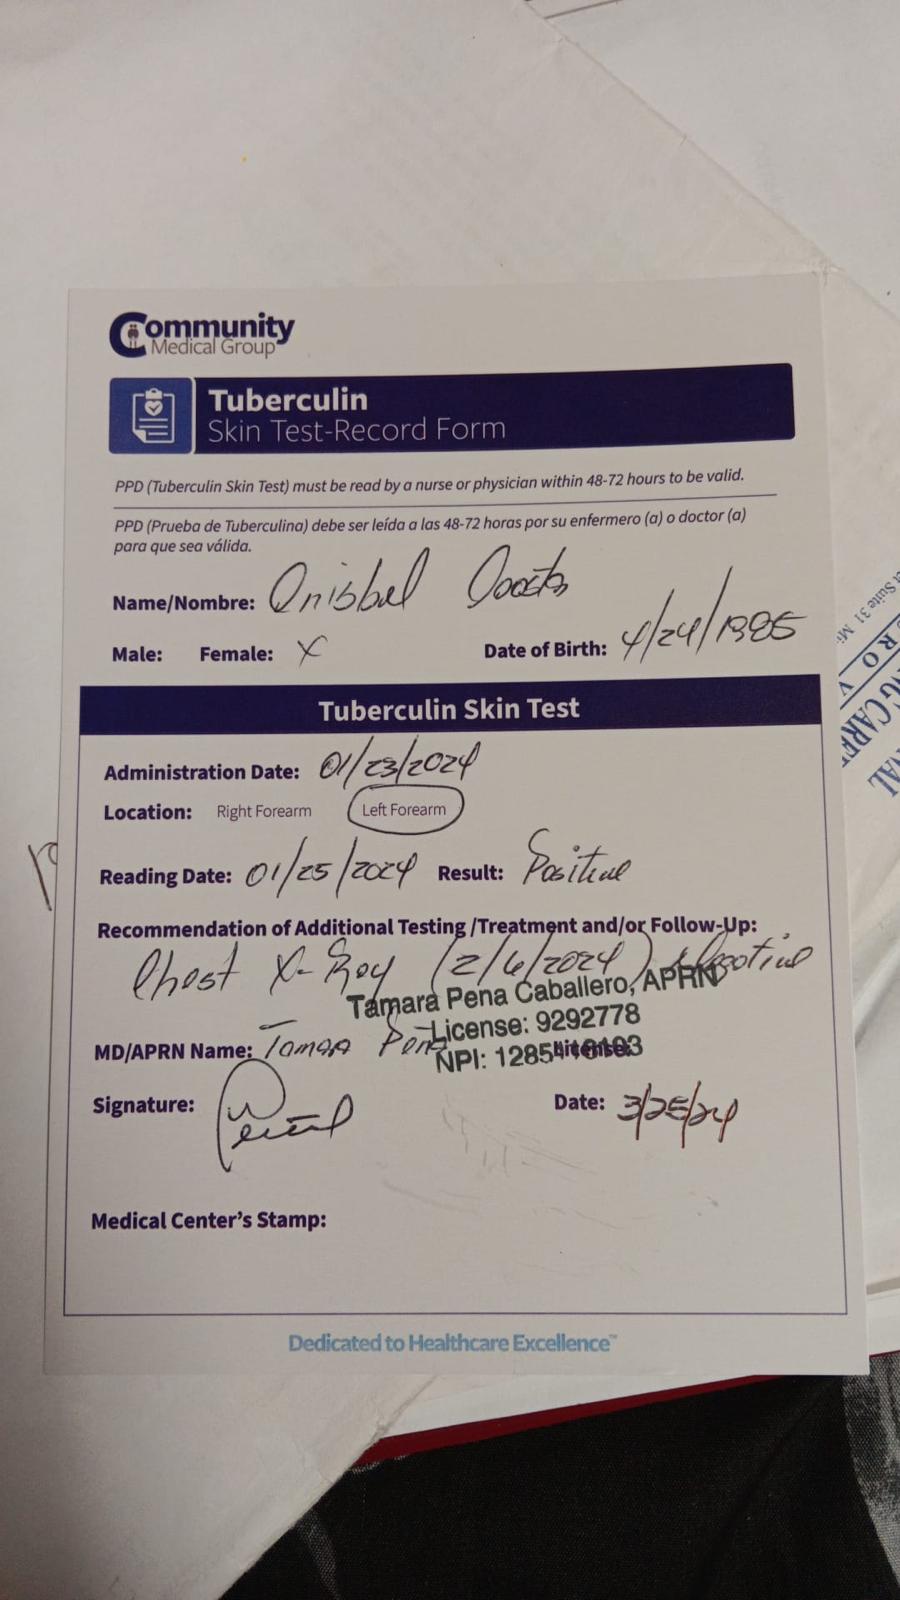 Community
Medical Group
Tuberculin
Skin Test-Record Form
PPD (Tuberculin Skin Test) must be read by a nurse or physician within 48-72 hours to be valid.
PPD (Prueba de Tuberculina) debe ser leída a las 48-72 horas por su enfermero (a) o doctor (a)
para que sea válida.
Name/Nombre:
Male: Female: X Date of Birth: 4/24/1985
Tuberculin Skin Test
Administration Date: 01/23/2024
Location: Right Forearm Left Forearm
Reading Date: 01/25/2024 Result: Positive
Recommendation of Additional Testing /Treatment and/or Follow-Up:
Chest X-Ray (2/6/2024) Negative
Tamara Pena Caballero, APRN
License: 9292778
MD/APRN Name: Tamara Pena License:
NPI:
Signature: Date: 3/25/24
Medical Center's Stamp:
Dedicated to Healthcare Excellence™